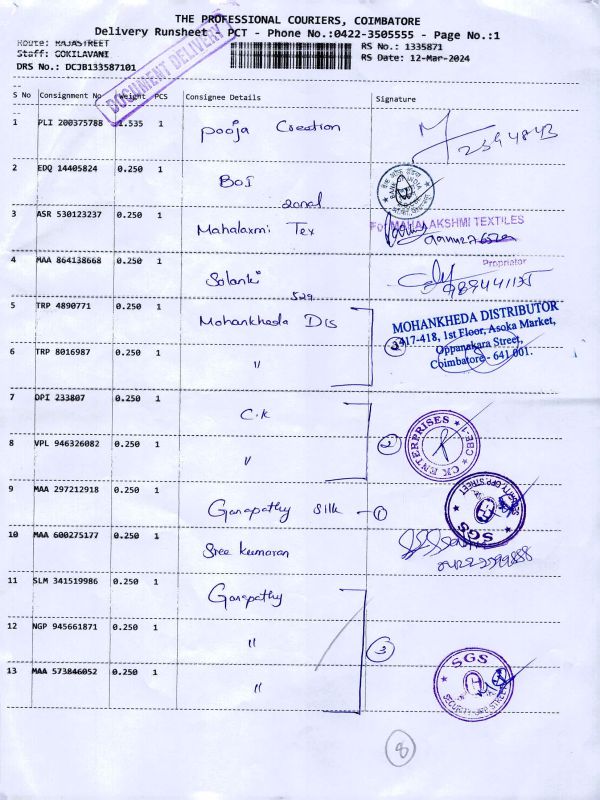 THE PROFESSIONAL COURIERS, COIMBATORE
Delivery Runsheet - PCT - Phone No.:0422-3505555 - Page No.:1
Route: RAJASTREET
RS No.: 1335871
Staff: GOKILAVANI
RS Date: 12-Mar-2024
DRS No.: DCJB133587101
DOCUMENT DELIVERY
S No Consignment No Weight PCS Consignee Details Signature
1 PLI 200375788 1.535 1 Pooja Creation
2 EDQ 14405824 0.250 1 BOI
Zonal
3 ASR 530123237 0.250 1 Mahalaxmi Tex For MAHALAKSHMI TEXTILES
Proprietor
4 MAA 864138668 0.250 1 Solanki
529
5 TRP 4890771 0.250 1 Mohankheda Dis
MOHANKHEDA DISTRIBUTOR
417-418, 1st Floor, Asoka Market,
Oppanakara Street,
Coimbatore - 641 001.
6 TRP 8016987 0.250 1 "
7 DPI 233807 0.250 1 C.K
CK ENTERPRISES CBE-1
2
8 VPL 946326082 0.250 1 "
9 MAA 297212918 0.250 1 Ganapathy Silk - 1
SGS
10 MAA 600275177 0.250 1 Sree Kumaran
11 SLM 341519986 0.250 1 Ganapathy
12 NGP 945661871 0.250 1 " 3
13 MAA 573846052 0.250 1 "
SGS
8